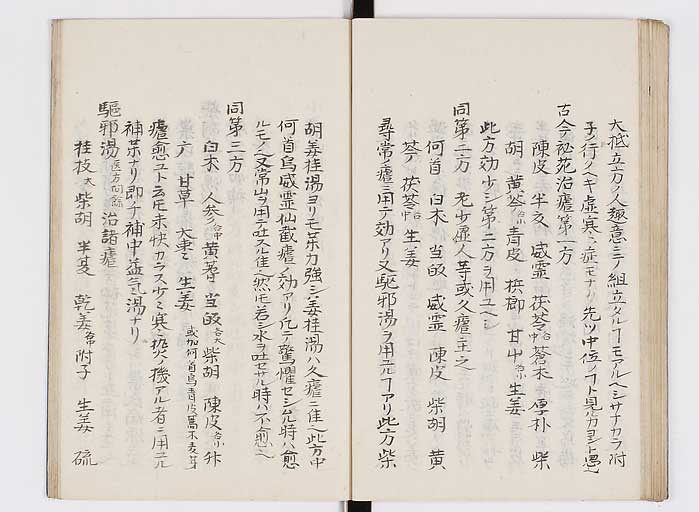 大抵立方ノ人趣意ニテ組立タルヿモアルヘシサナカラ附
子ノ行クヘキ虚寒ノ症モナリ先ツ中位ノヿト見ルカヨシト愚也
古今秘苑治瘧第一方
陳皮 半夏 威霊 茯苓 蒼朮 厚朴 柴
胡 黄芩 青皮 梹榔 甘艸 生姜
此方効少シ第二方ヲ用ユヘシ
同第二方 老少虚人等或久瘧主之
何首 白朮 当皈 威霊 陳皮 柴胡 黄
芩 茯苓 生姜
尋常ノ瘧ニ用テ効アリ又駆邪湯ヲ用ユルヿアリ此方柴
胡姜桂湯ヨリモ薬力強シ姜桂湯ハ久瘧ニ佳也此方中
何首烏威霊仙截瘧ノ効アリ凡テ驚懼セシムル時ハ愈
ルモノ也又常山ヲ用テ吐スル佳也然モ若シ水ヲ吐セサル時ハ不愈也
同第三方
白朮 人参 黄耆 当皈各大 柴胡 陳皮各小 升
六 甘草 大棗 生姜 或加何首烏青皮
瘧愈ユト云モ未快カラス少シ寒ノ機アル者ニ用ユル
補薬ナリ即チ補中益気湯ナリ
駆邪湯 医方 治諸瘧
桂枝大 柴胡 半夏 乾姜 附子 生姜 硫